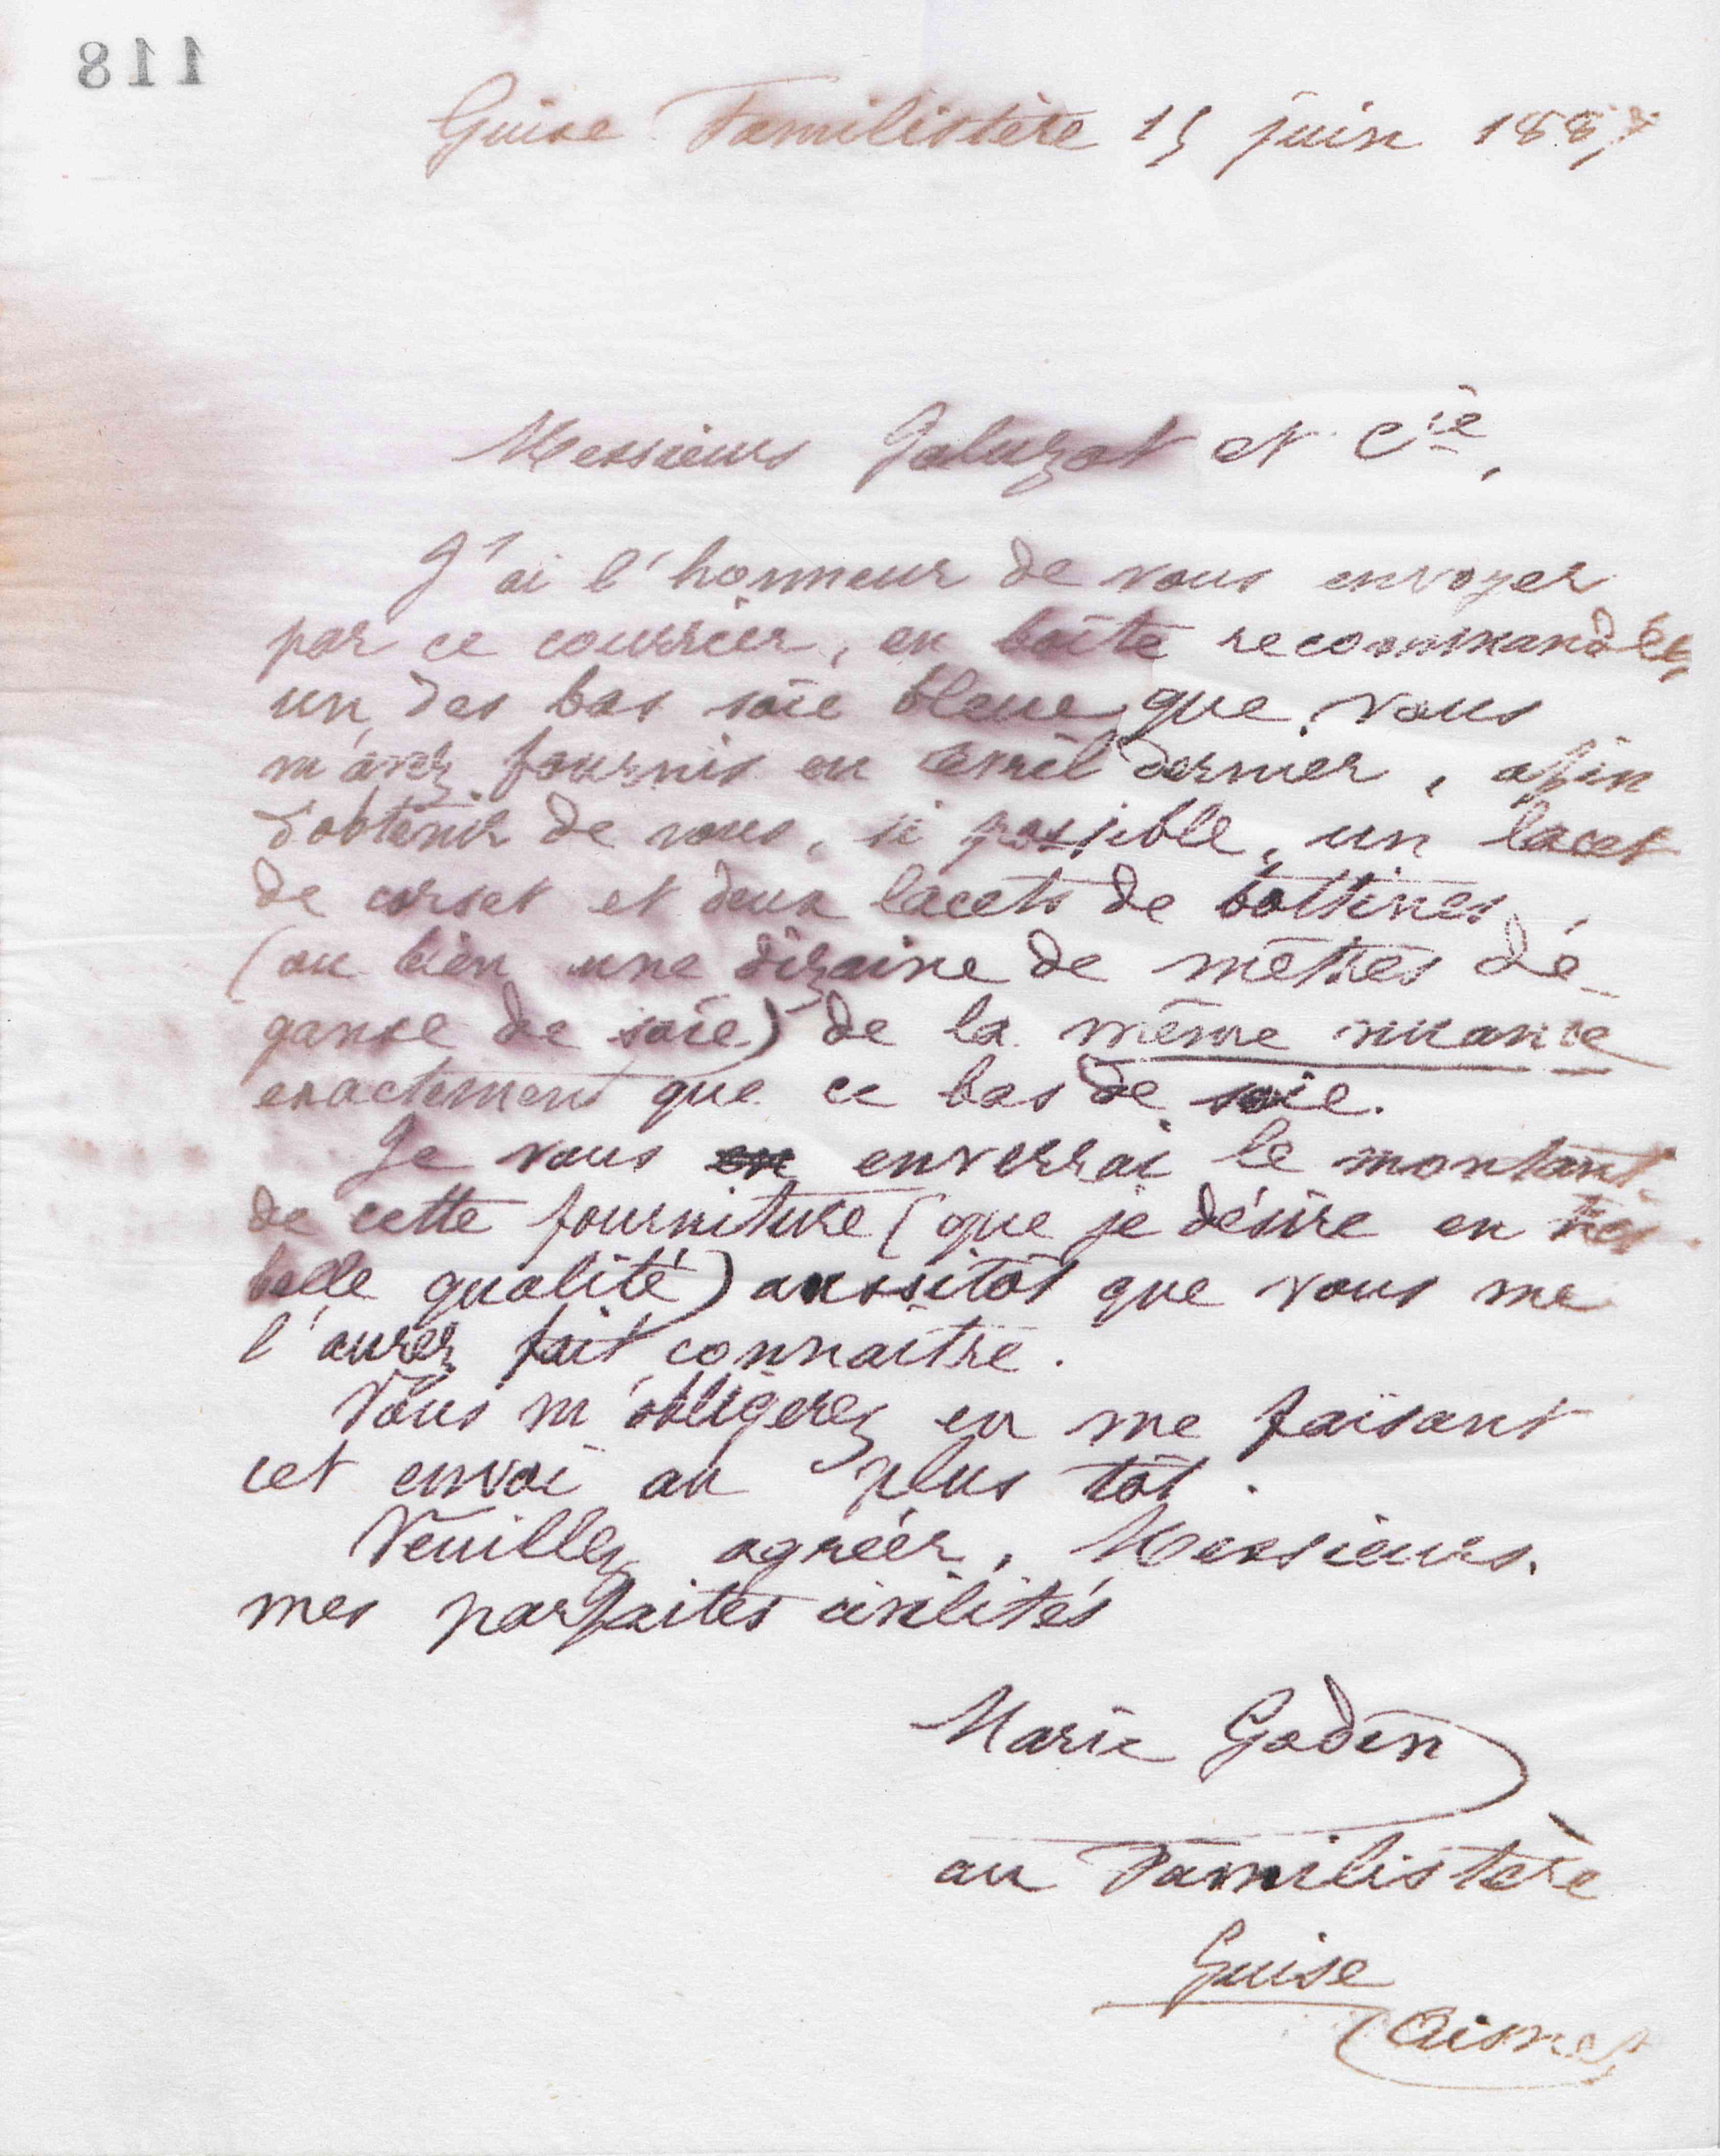 118
Guise Familistère 15 juin 1887
Messieurs Jaluzot et Cie,
J'ai l'honneur de vous envoyer
par ce courrier, en boîte recommandée,
un des bas soie bleue que vous
m'avez fournis en avril dernier, afin
d'obtenir de vous, si possible, un lacet
de corset et deux lacets de bottines
(ou bien une dizaine de mètres de
ganse de soie) de la même nuance
exactement que ce bas de soie.
Je vous en enverrai le montant
de cette fourniture (que je désire en très
belle qualité) aussitôt que vous me
l'aurez fait connaître.
Vous m'obligerez en me faisant
cet envoi au plus tôt.
Veuillez agréer, Messieurs,
mes parfaites civilités
Marie Godin
au Familistère
Guise
(Aisne)